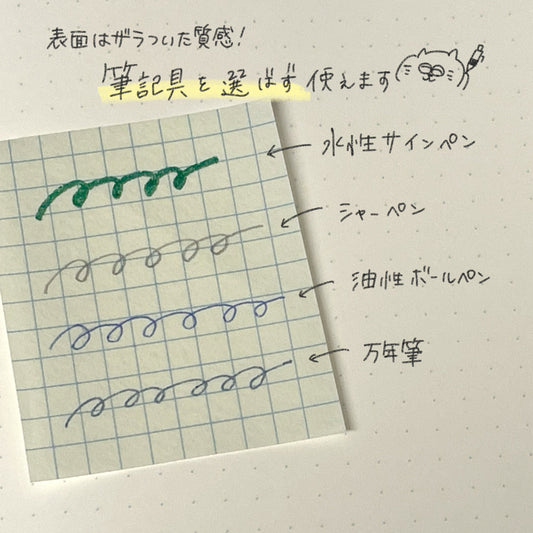 表面はザラついた質感!
筆記具を選ばず使えます
水性サインペン
シャーペン
油性ボールペン
万年筆